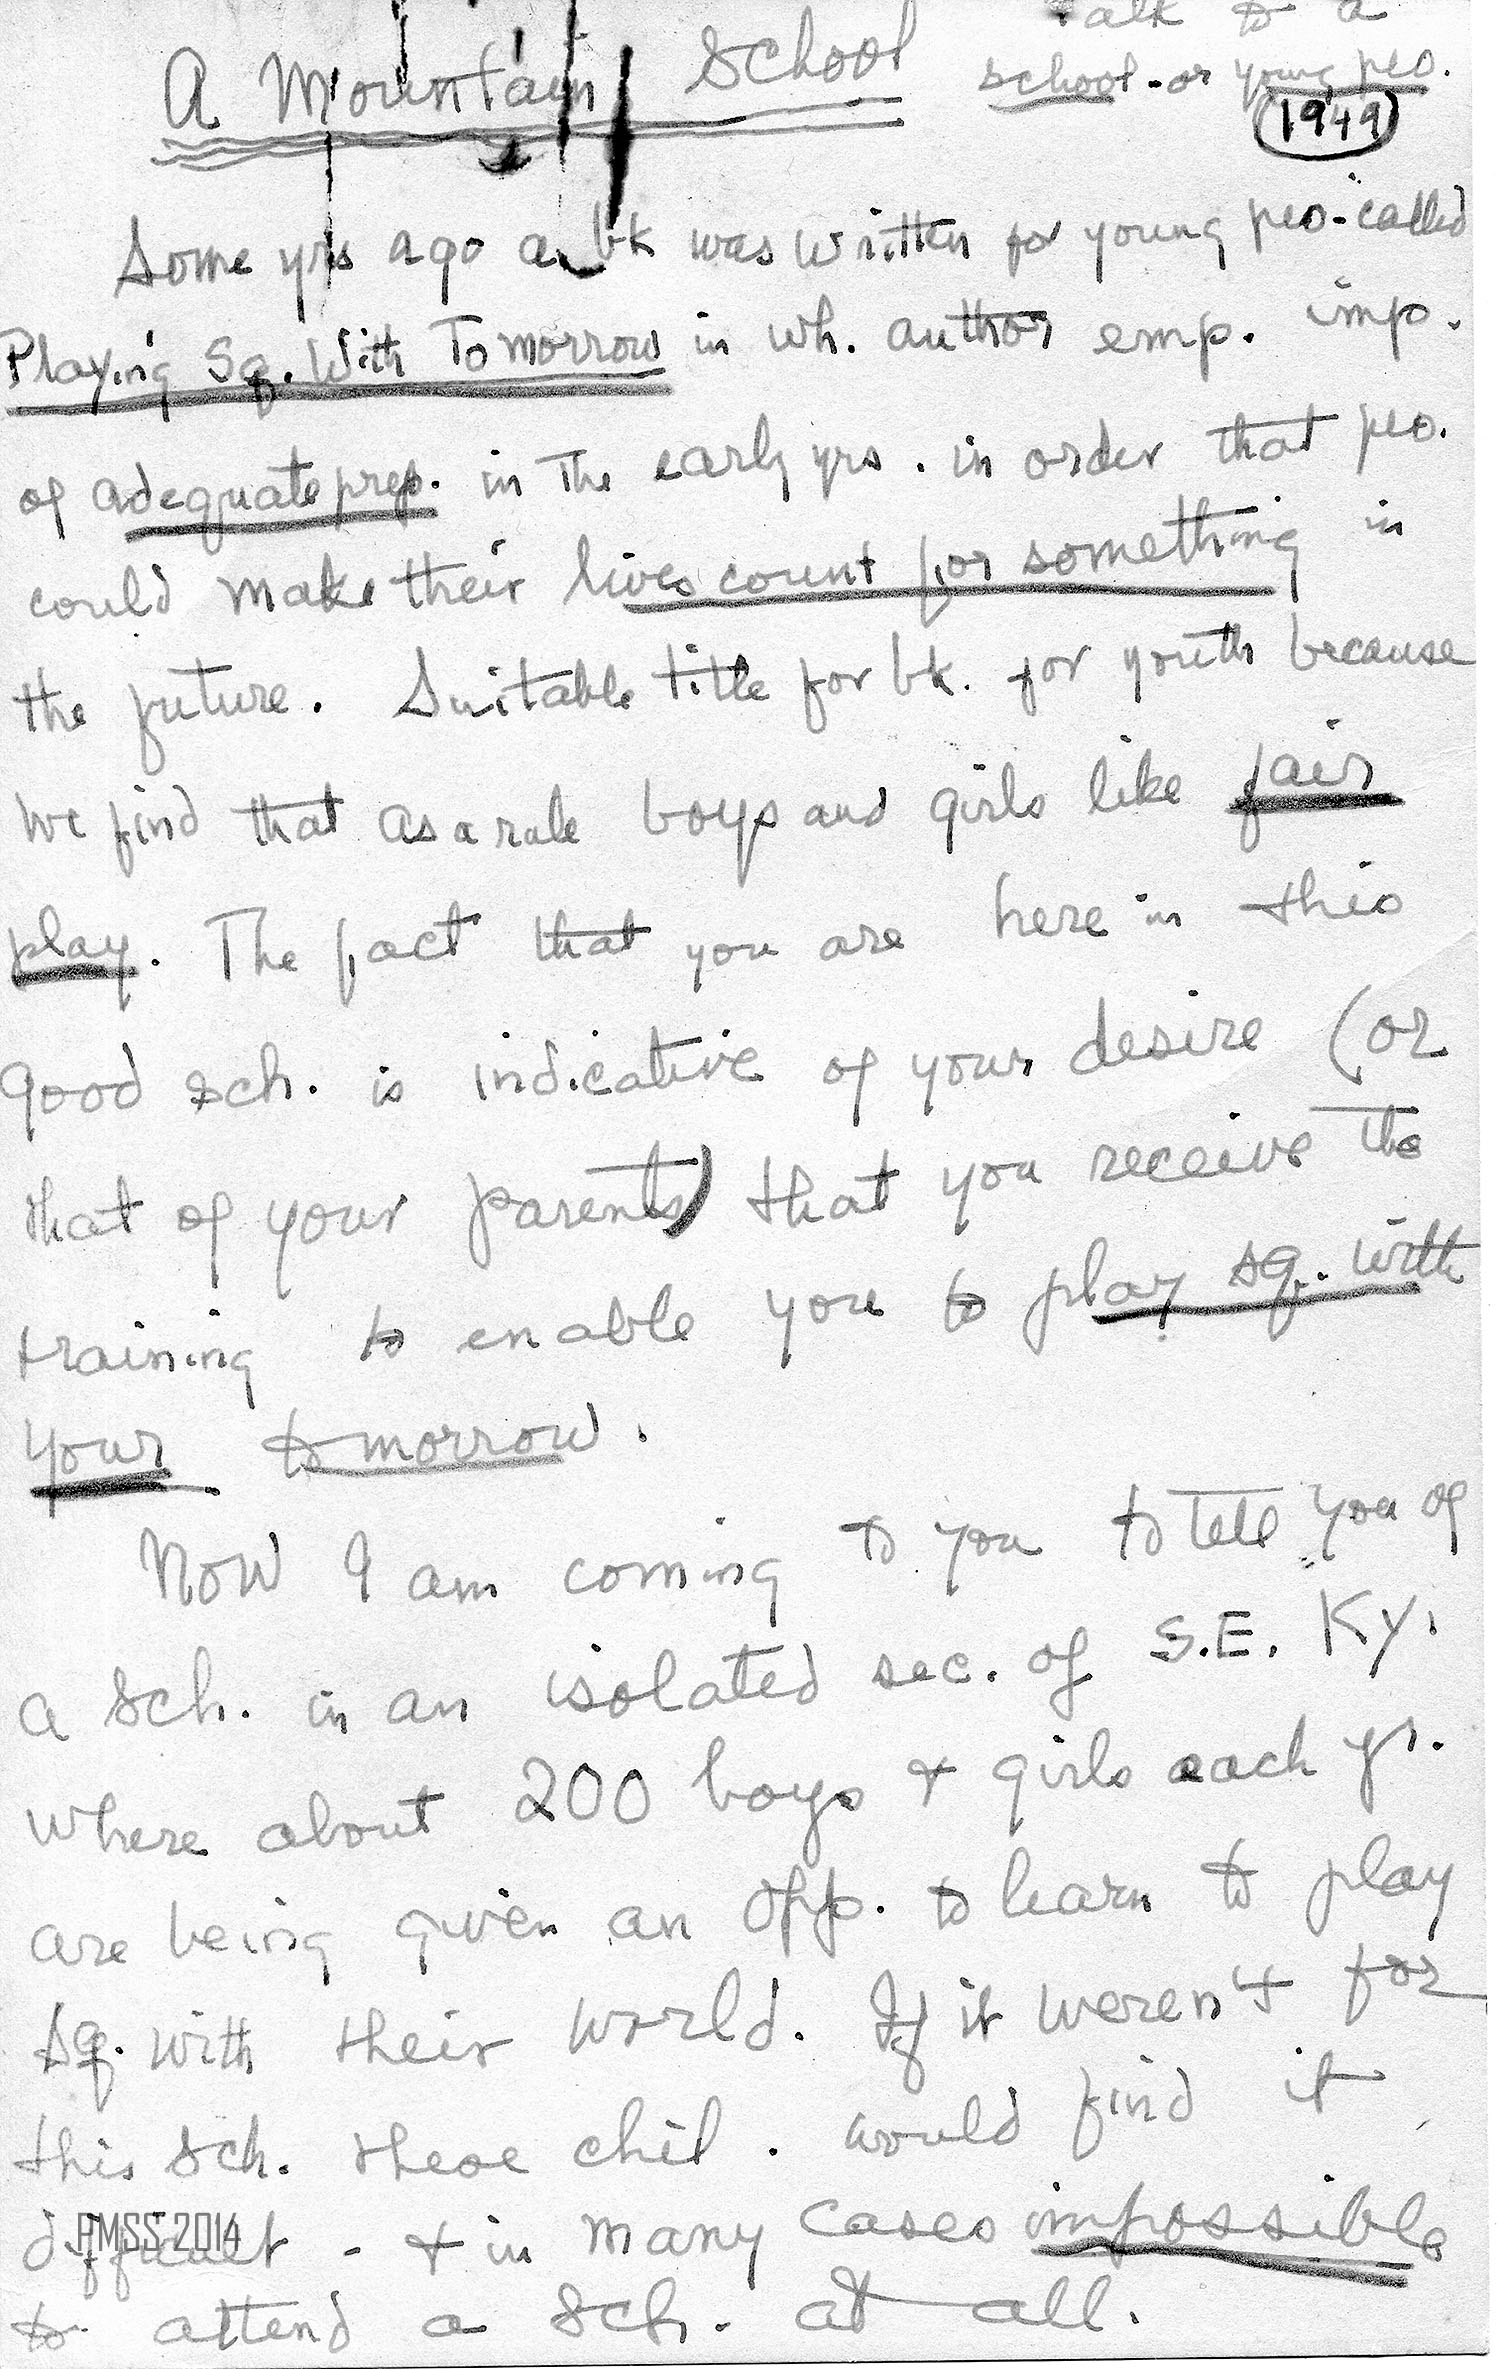 A Mountain School
Talk to a
school - or young peo.
1949
Some yrs ago a bk was written for young peo - called
Playing Sq. With Tomorrow in wh. author emp. imp.
of adequate prep. in the early yrs. in order that peo.
could make their lives count for something in
the future. Suitable title for bk. for youth because
we find that as a rule boys and girls like fair
play. The fact that you are here in this
good sch. is indicative of your desire (or
that of your parents) that you receive the
training to enable you to play sq. with
your tomorrow.
Now I am coming to you to tell you of
a sch. in an isolated sec. of S.E. Ky.
where about 200 boys & girls each yr.
are being given an opp. to learn to play
sq. with their world. If it weren't for
this sch. these chil. would find it
difficult - & in many cases impossible
PMSS 2014
to attend a sch. at all.